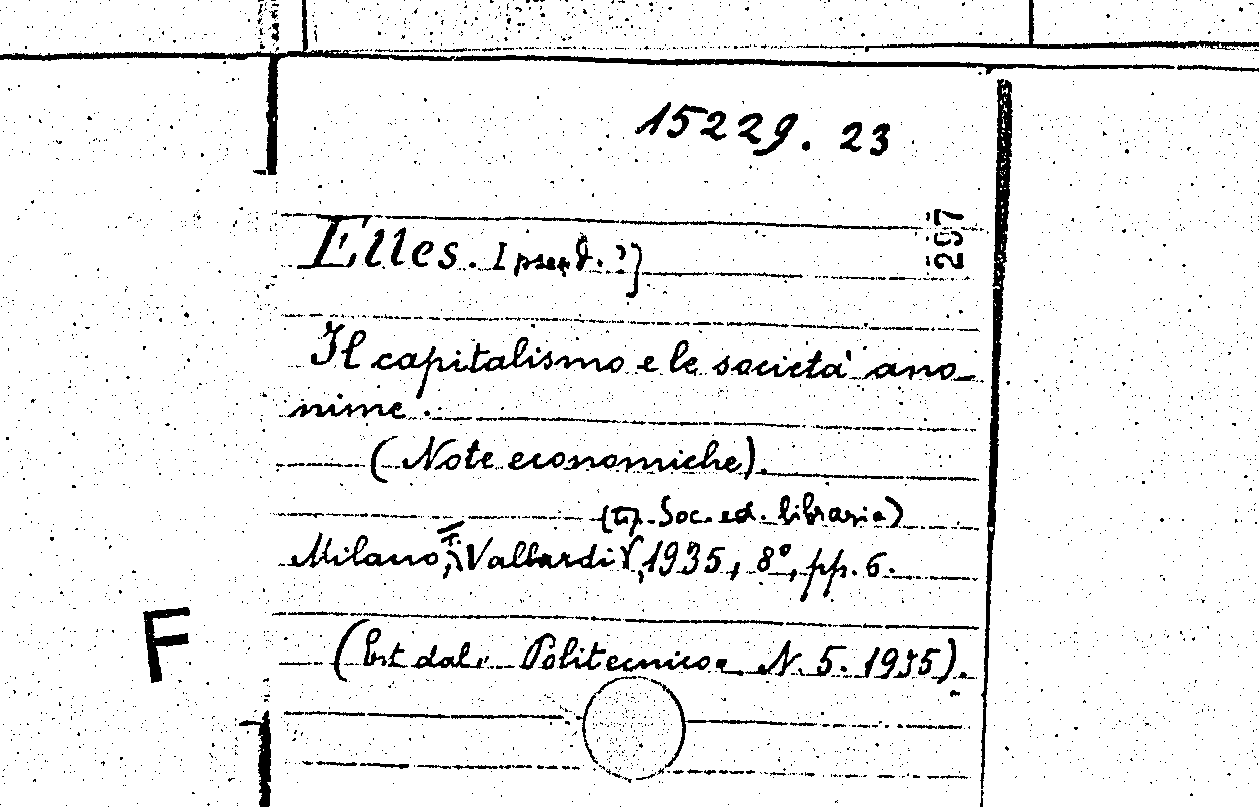 15229. 23
297
Elles. [pseud. ?]
Il capitalismo e le società ano-
nime.
(Note economiche).
(tip. Soc. ed. libraria)
Milano, F. Vallardi, 1935, 8°, pp. 6.
F
(Est. dal. Politecnico. N. 5. 1935).